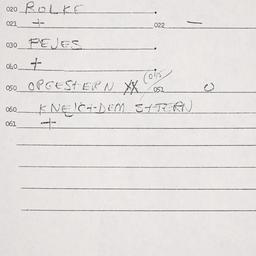 020 ROLKE
021 + 022 —
030 PEJES
040 +
050 OPGESTERN XX 051 0
060 KNEICHDEM STERN
061 +